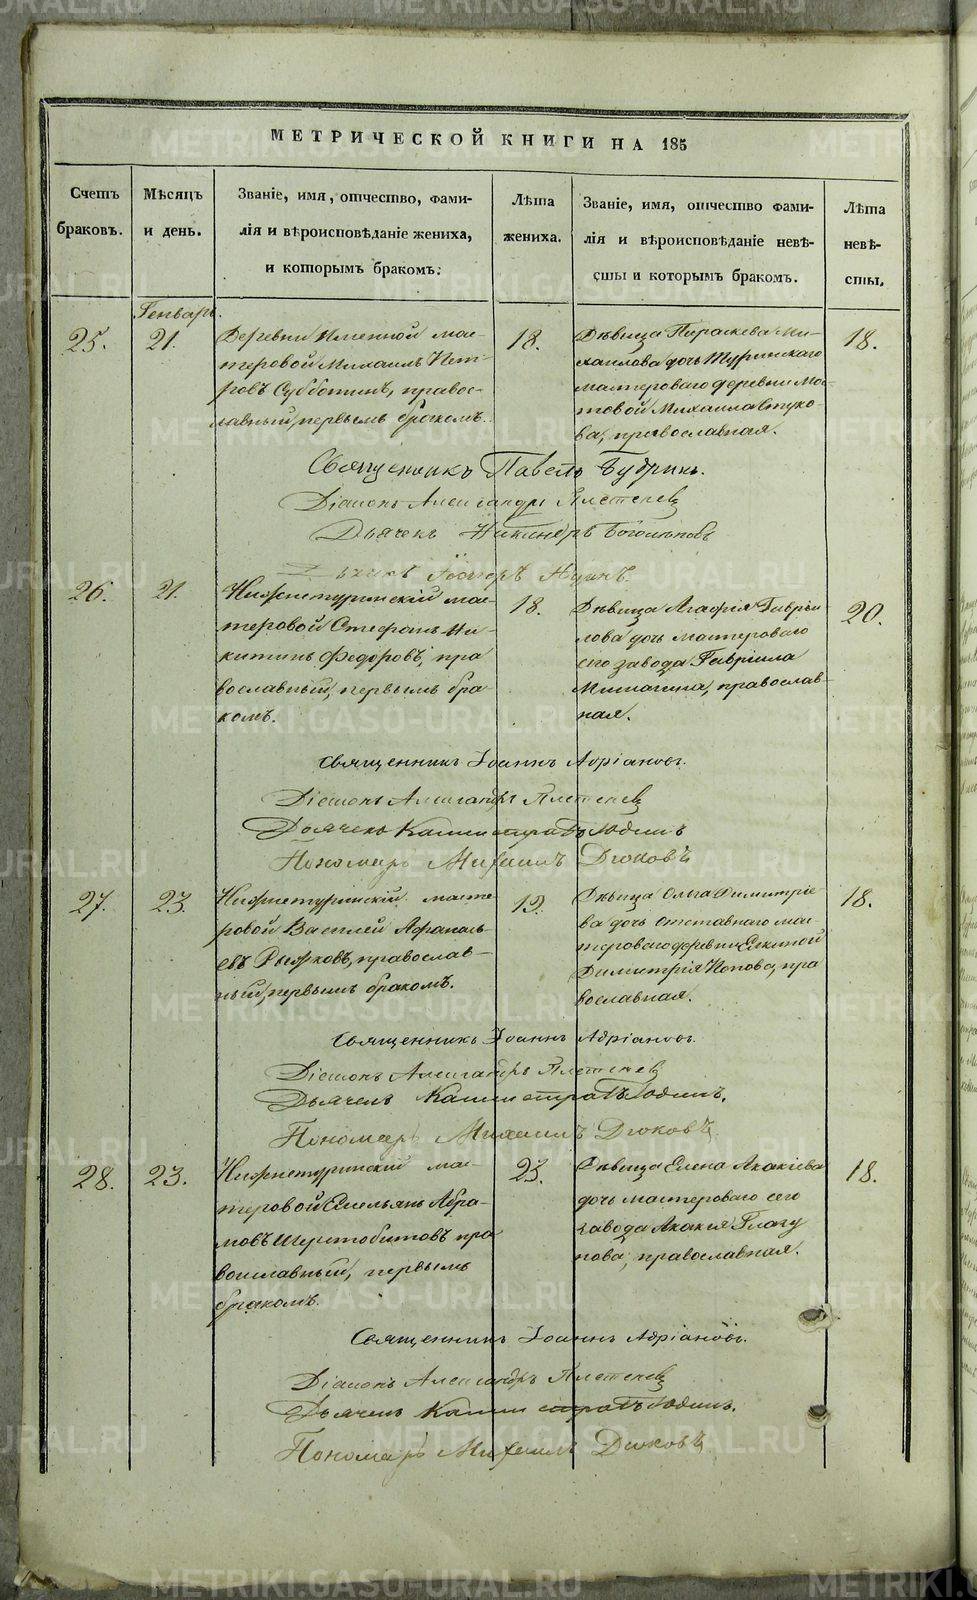 МЕТРИЧЕСКОЙ КНИГИ НА 185
Счетъ браковъ.
Мѣсяцъ и день.
Званіе, имя, отчество, фами-
лія и вѣроисповѣданіе жениха,
и которымъ бракомъ.
Лѣта жениха.
Званіе, имя, отчество фами-
лія и вѣроисповѣданіе невѣ-
сты и которымъ бракомъ.
Лѣта невѣ-
сты.
Генварь.
25.
21.
Деревни Именной мас-
теровой Михаилъ Пет-
ровъ Субботинъ, правос-
лавный, первымъ бракомъ.
18.
Дѣвица Параскева Ми-
хайлова дочь Туринскаго
мастероваго деревни
Михаила
ва, православная.
18.
Священникъ Павелъ Будринъ.
Діаконъ Александръ Плетеневъ
Дьячекъ
26.
21.
Нижнетуринскій мас-
теровой Стефанъ Ни-
китинъ Федоровъ, пра
вославный, первымъ бра
комъ.
18.
Дѣвица Агафія Гаврі
лова дочь мастероваго
сего завода Гавріила
православ-
ная.
20.
Священникъ Іоаннъ Адріановъ.
Діаконъ Александръ Плетеневъ
Дьячекъ Каллистратъ Юдинъ
Пономарь Михаилъ Дюковъ
27.
23.
Нижнетуринскій масте
ровой Василей Афанась
евъ Рыжковъ, православ-
ный, первымъ бракомъ.
19.
Дѣвица Ольга Димитріе
ва дочь отставнаго мас-
тероваго деревни Елкиной
Димитрія Попова, пра
вославная.
18.
Священникъ Іоаннъ Адріановъ.
Діаконъ Александръ Плетеневъ
Дьячекъ Каллистратъ Юдинъ.
Пономарь Михаилъ Дюковъ
28.
23.
Нижнетуринскій мас-
теровой Емельянъ Абра-
мовъ Шерстобитовъ пра
вославный, первымъ
бракомъ.
23.
Дѣвица Елена Акакіева
дочь мастероваго сего
завода Акакія Глазу
нова, православная.
18.
Священникъ Іоаннъ Адріановъ.
Діаконъ Александръ Плетеневъ
Дьячекъ Каллистратъ Юдинъ.
Пономарь Михаилъ Дюковъ
METRIKI.GASO-URAL.RU